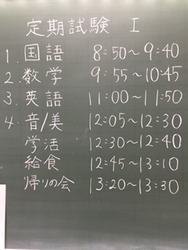 定期試験 I
1. 国語 8:50〜9:40
2. 数学 9:55〜10:45
3. 英語 11:00〜11:50
4. 音/美 12:05〜12:30
学活 12:30〜12:40
給食 12:45〜13:10
帰りの会 13:20〜13:30